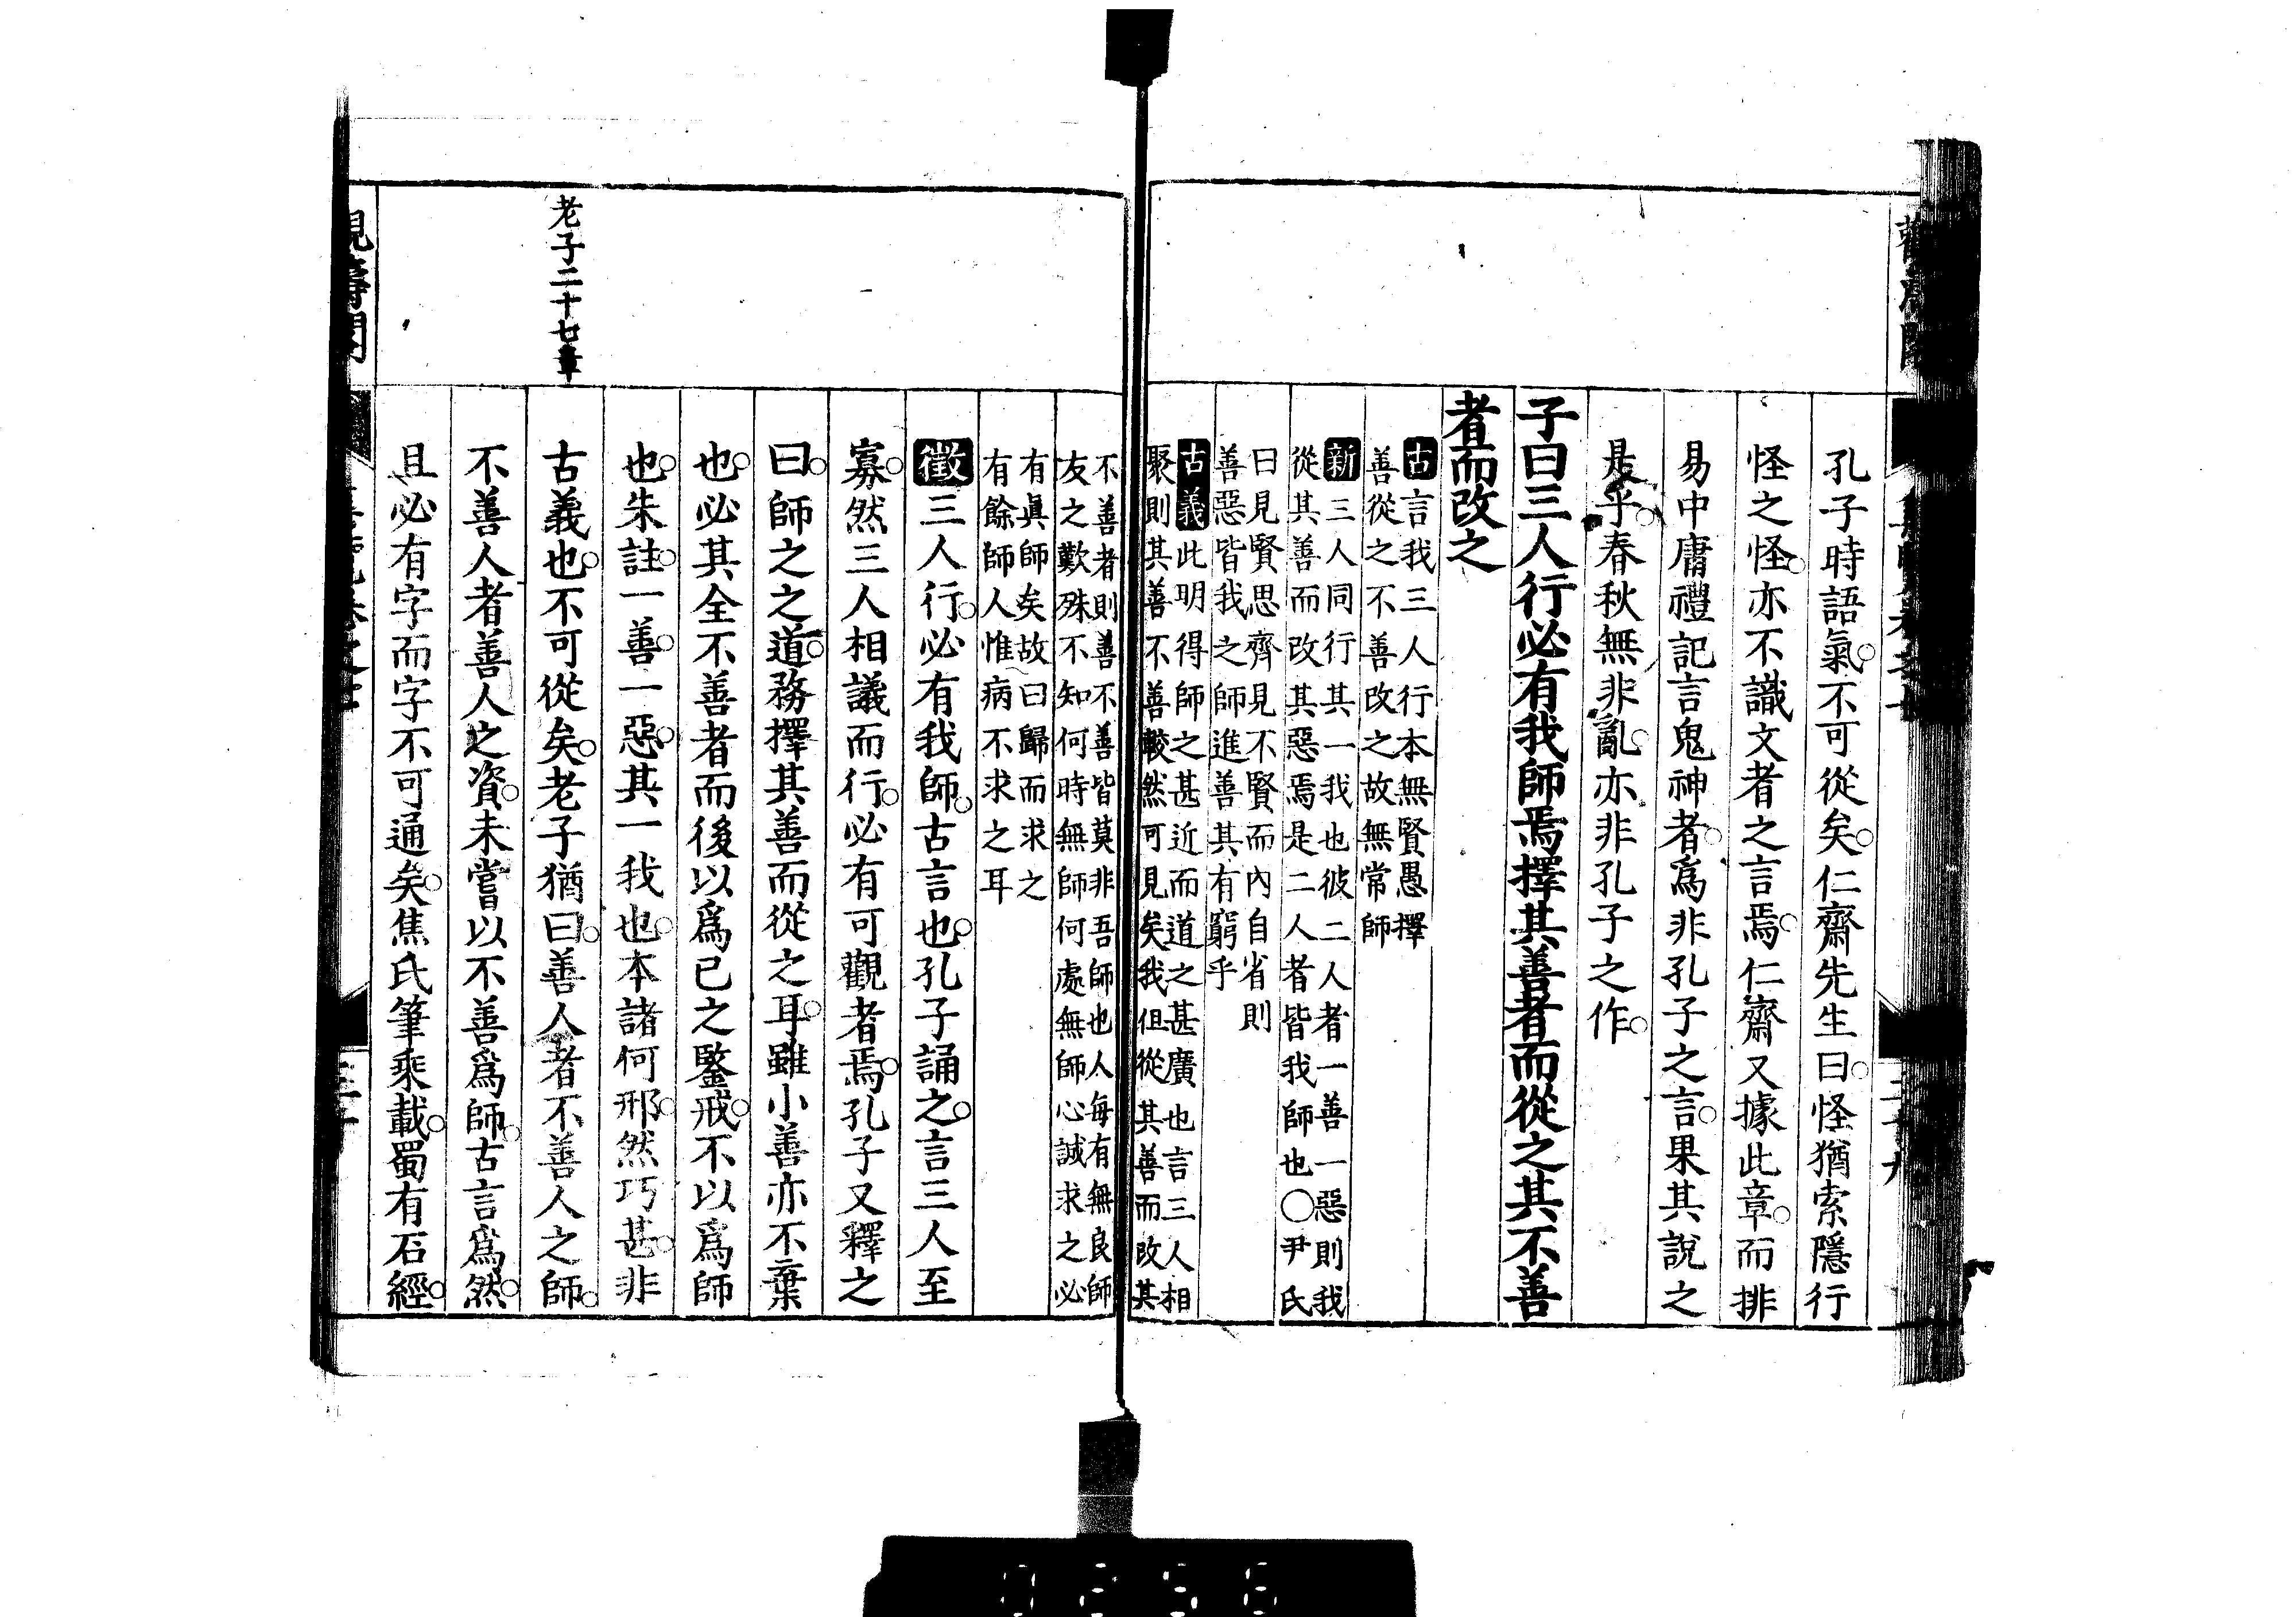 孔子時語氣。不可從矣。仁齋先生曰。怪猶索隱行
怪之怪。亦不識文者之言焉。仁齋又據此章。而排
易中庸禮記言鬼神者。爲非孔子之言。果其說之
是乎。春秋無非亂。亦非孔子之作。
子曰三人行必有我師焉擇其善者而從之其不善
者而改之
古言我三人行本無賢愚擇
善從之不善改之故無常師
新三人同行其一我也彼二人者一善一惡則我
從其善而改其惡焉是二人者皆我師也○尹氏
曰見賢思齊見不賢而內自省則
善惡皆我之師進善其有窮乎
古義此明得師之甚近而道之甚廣也言三人相
聚則其善不善較然可見矣我但從其善而改其
不善者則善不善皆莫非吾師也人每有無良師
友之歎殊不知何時無師何處無師心誠求之必
有眞師矣故曰歸而求之
有餘師人惟病不求之耳
徵三人行。必有我師。古言也。孔子誦之。言三人至
寡。然三人相議而行。必有可觀者焉。孔子又釋之
曰。師之之道。務擇其善而從之耳。雖小善亦不棄
也。必其全不善者而後以爲己之鑒戒。不以爲師
也。朱註。一善。一惡。其一我也。本諸何邢。然巧甚。非
古義也。不可從矣。老子猶曰。善人者不善人之師。
不善人者善人之資。未嘗以不善爲師。古言爲然。
且必有字而字不可通矣。焦氏筆乘載。蜀有石經。
老子二十七章